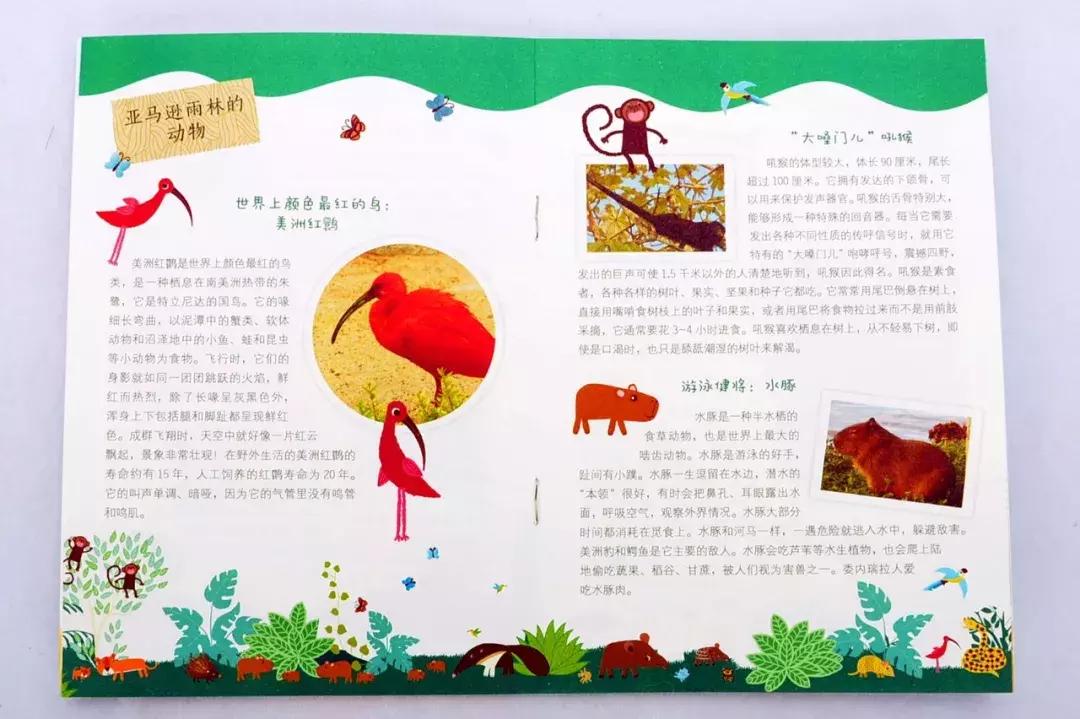 亚马逊雨林的
动物
世界上颜色最红的鸟：
美洲红鹮
美洲红鹮是世界上颜色最红的鸟
类，是一种栖息在南美洲热带的朱
鹭，它是特立尼达的国鸟。它的喙
细长弯曲，以泥潭中的蟹类、软体
动物和沼泽地中的小鱼、蛙和昆虫
等小动物为食物。飞行时，它们的
身影就如同一团团跳跃的火焰，鲜
红而热烈，除了长喙呈灰黑色外，
浑身上下包括腿和脚趾都呈现鲜红
色。成群飞翔时，天空中就好像一片红云
飘起，景象非常壮观！在野外生活的美洲红鹮的
寿命约有15年，人工饲养的红鹮寿命为20年。
它的叫声单调、暗哑，因为它的气管里没有鸣管
和鸣肌。
“大嗓门儿”吼猴
吼猴的体型较大，体长90厘米，尾长
超过100厘米。它拥有发达的下颌骨，可
以用来保护发声器官。吼猴的舌骨特别大，
能够形成一种特殊的回音器。每当它需要
发出各种不同性质的传呼信号时，就用它
特有的“大嗓门儿”咆哮呼号，震撼四野，
发出的巨声可使1.5千米以外的人清楚地听到，吼猴因此得名。吼猴是素食
者，各种各样的树叶、果实、坚果和种子它都吃。它常常用尾巴倒悬在树上，
直接用嘴啃食树枝上的叶子和果实，或者用尾巴将食物拉过来而不是用前肢
采摘，它通常要花3~4小时进食。吼猴喜欢栖息在树上，从不轻易下树，即
使是口渴时，也只是舔舐潮湿的树叶来解渴。
游泳健将：水豚
水豚是一种半水栖的
食草动物，也是世界上最大的
啮齿动物。水豚是游泳的好手，
趾间有小蹼。水豚一生逗留在水边，潜水的
“本领”很好，有时会把鼻孔、耳眼露出水
面，呼吸空气，观察外界情况。水豚大部分
时间都消耗在觅食上。水豚和河马一样，一遇危险就逃入水中，躲避敌害。
美洲豹和鳄鱼是它主要的敌人。水豚会吃芦苇等水生植物，也会爬上陆
地偷吃蔬果、稻谷、甘蔗，被人们视为害兽之一。委内瑞拉人爱
吃水豚肉。